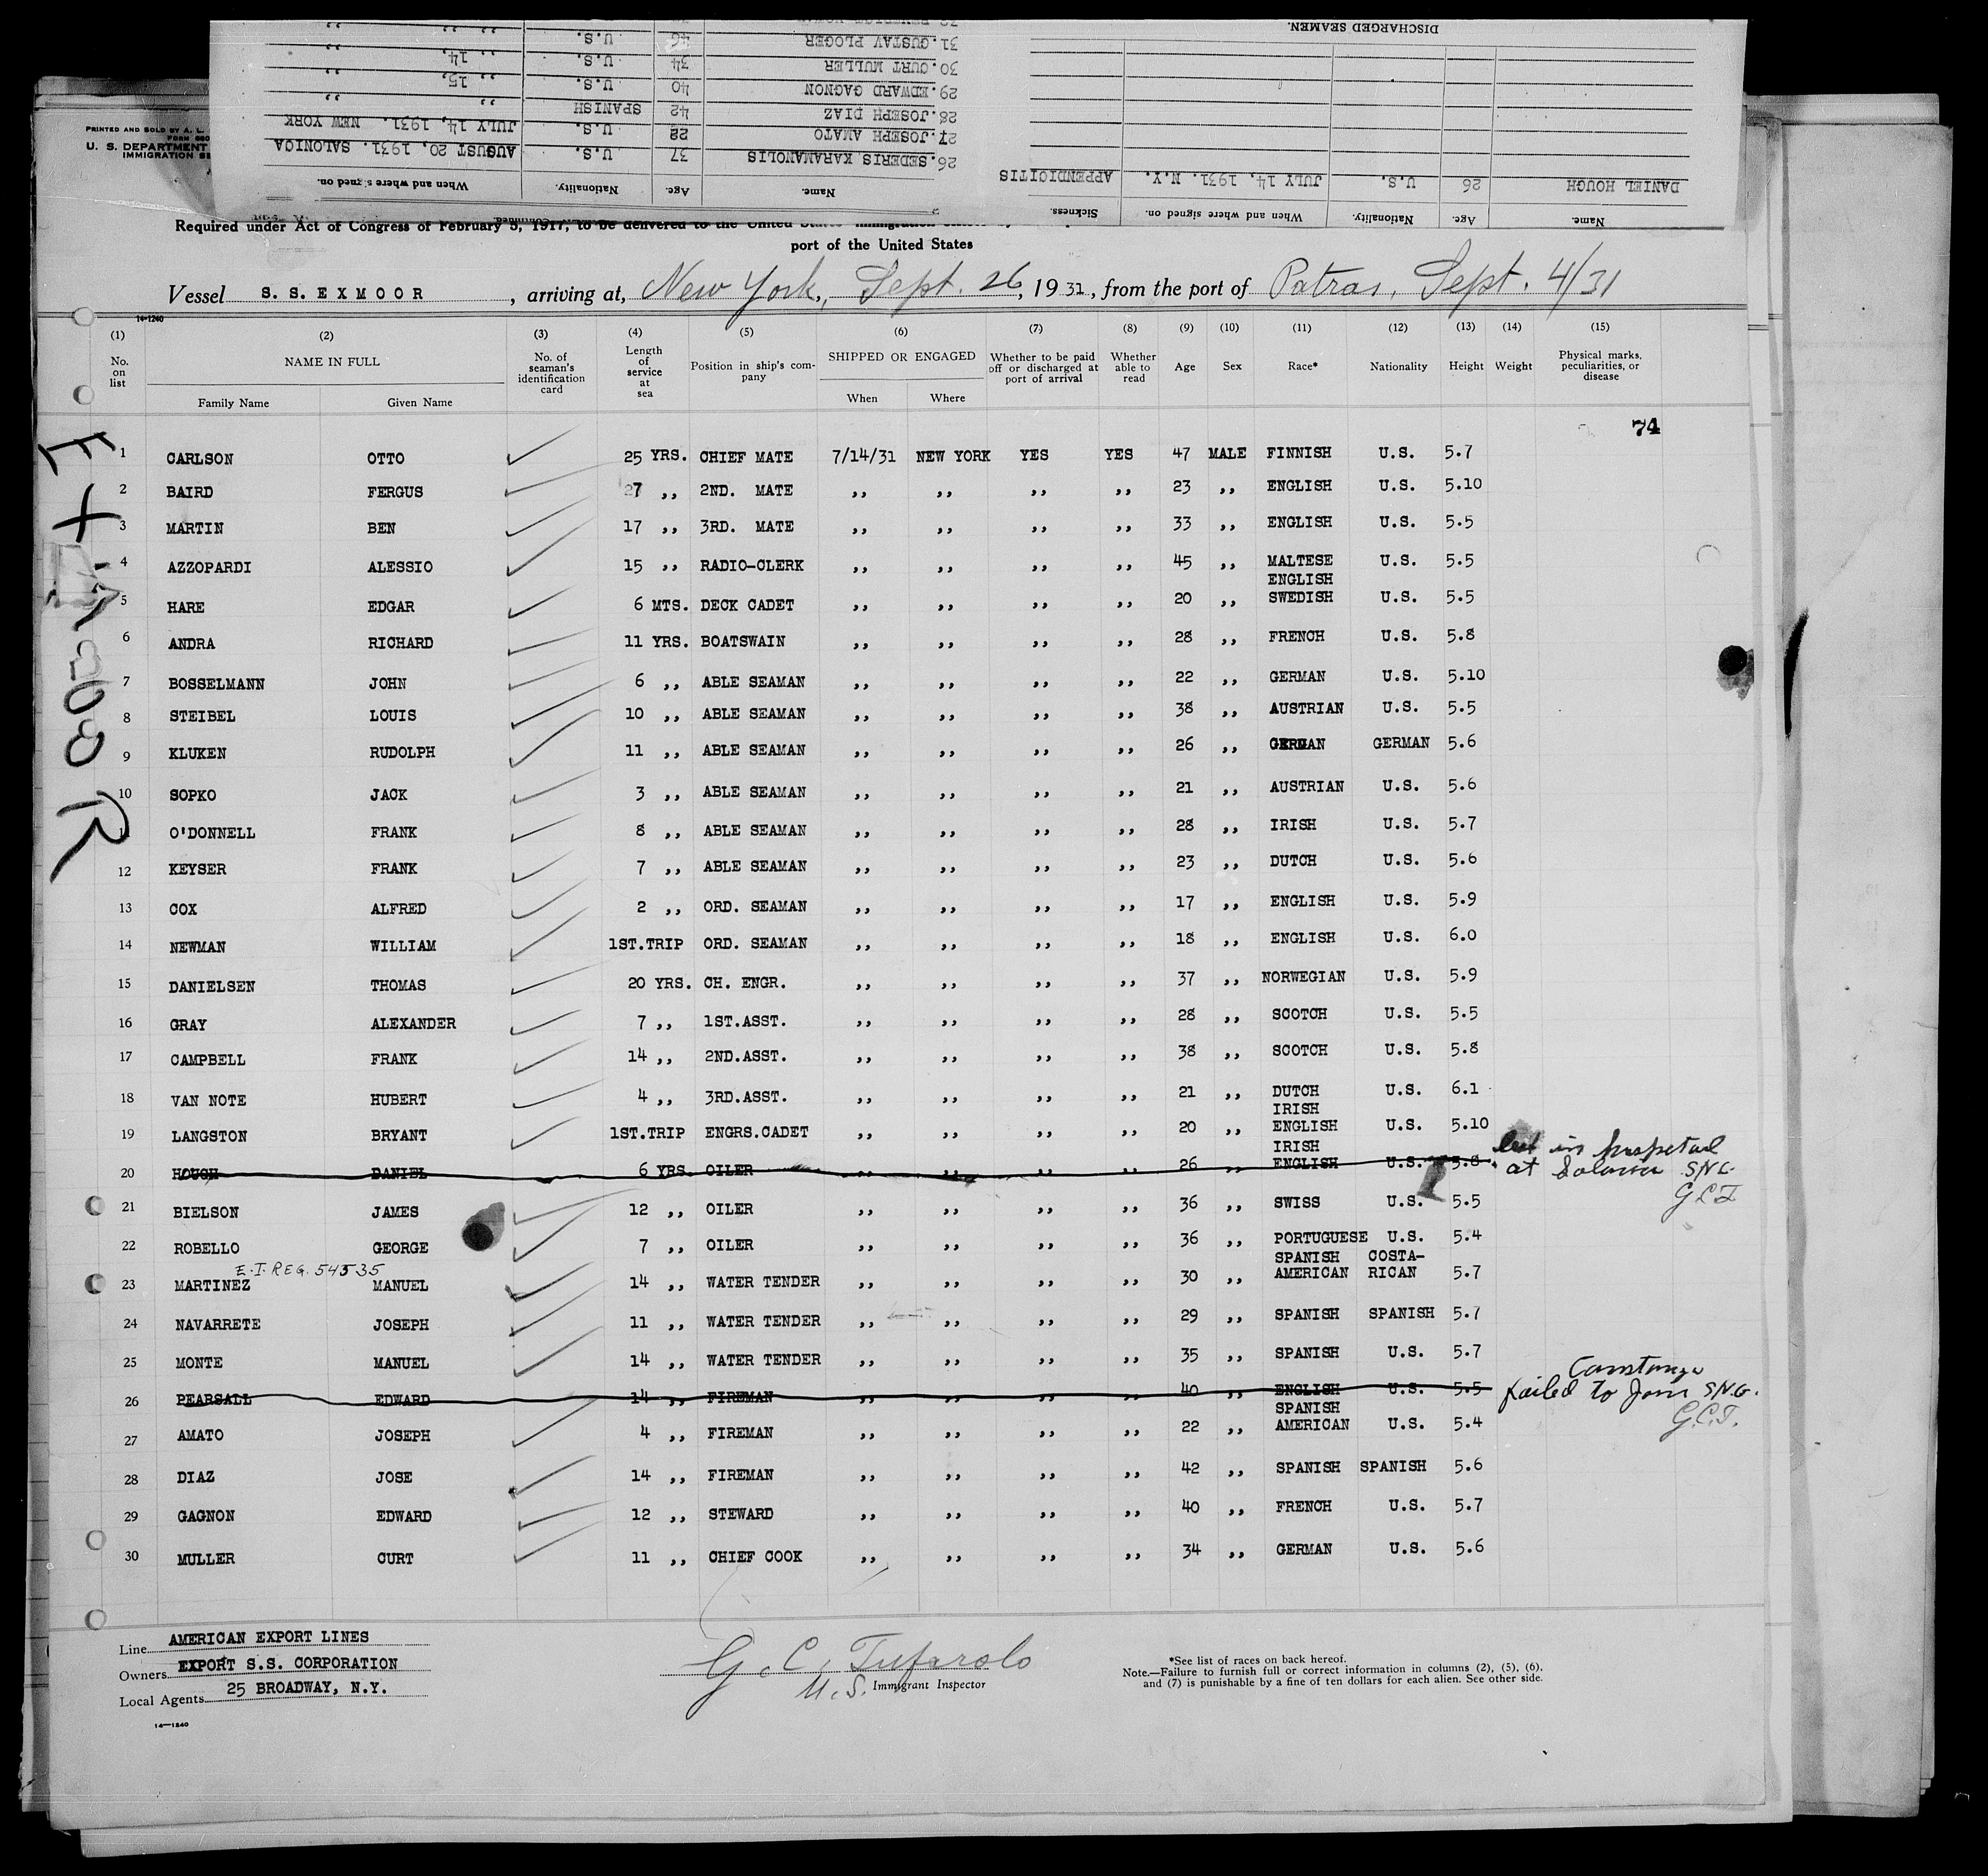 DISCHARGED SEAMEN.
Name. Age. Nationality. When and where signed on. Sickness.
DANIEL HOUGH 26 U.S. JULY 14, 1931. N.Y. APPENDICITIS
Name. Age. Nationality. When and where signed on.
26. SEDERIS KARAMANOLIS 37 U.S. AUGUST 20, 1931. SALONICA
27. JOSEPH AMATO 22 U.S. JULY 14, 1931. NEW YORK
28. JOSEPH DIAZ 42 SPANISH ,, ,,
29. EDWARD GAGNON 40 U.S. ,, 15, ,,
30. CURT MULLER 34 U.S. ,, 14, ,,
31. GUSTAV PLOGER 46 U.S. ,, ,,
PRINTED AND SOLD BY A. L.
U. S. DEPARTMENT
IMMIGRATION SE
Required under Act of Congress of February 5, 1917, to be delivered to the United States
port of the United States
Vessel S. S. EXMOOR, arriving at, New York, Sept. 26, 1931, from the port of Patras, Sept. 4/31
14-1240
(1) (2) (3) (4) (5) (6) (7) (8) (9) (10) (11) (12) (13) (14) (15)
No. on list NAME IN FULL Family Name Given Name No. of seaman's identification card Length of service at sea Position in ship's company SHIPPED OR ENGAGED When Where Whether to be paid off or discharged at port of arrival Whether able to read Age Sex Race* Nationality Height Weight Physical marks, peculiarities, or disease
74
EXMOOR
1 CARLSON OTTO 25 YRS. CHIEF MATE 7/14/31 NEW YORK YES YES 47 MALE FINNISH U.S. 5.7
2 BAIRD FERGUS 7 ,, 2ND. MATE ,, ,, ,, ,, 23 ,, ENGLISH U.S. 5.10
3 MARTIN BEN 17 ,, 3RD. MATE ,, ,, ,, ,, 33 ,, ENGLISH U.S. 5.5
4 AZZOPARDI ALESSIO 15 ,, RADIO-CLERK ,, ,, ,, ,, 45 ,, MALTESE U.S. 5.5
5 HARE EDGAR 6 MTS. DECK CADET ,, ,, ,, ,, 20 ,, ENGLISH SWEDISH U.S. 5.5
6 ANDRA RICHARD 11 YRS. BOATSWAIN ,, ,, ,, ,, 28 ,, FRENCH U.S. 5.8
7 BOSSELMANN JOHN 6 ,, ABLE SEAMAN ,, ,, ,, ,, 22 ,, GERMAN U.S. 5.10
8 STEIBEL LOUIS 10 ,, ABLE SEAMAN ,, ,, ,, ,, 38 ,, AUSTRIAN U.S. 5.5
9 KLUKEN RUDOLPH 11 ,, ABLE SEAMAN ,, ,, ,, ,, 26 ,, GERMAN GERMAN 5.6
10 SOPKO JACK 3 ,, ABLE SEAMAN ,, ,, ,, ,, 21 ,, AUSTRIAN U.S. 5.6
11 O'DONNELL FRANK 8 ,, ABLE SEAMAN ,, ,, ,, ,, 28 ,, IRISH U.S. 5.7
12 KEYSER FRANK 7 ,, ABLE SEAMAN ,, ,, ,, ,, 23 ,, DUTCH U.S. 5.6
13 COX ALFRED 2 ,, ORD. SEAMAN ,, ,, ,, ,, 17 ,, ENGLISH U.S. 5.9
14 NEWMAN WILLIAM 1ST.TRIP ORD. SEAMAN ,, ,, ,, ,, 18 ,, ENGLISH U.S. 6.0
15 DANIELSEN THOMAS 20 YRS. CH. ENGR. ,, ,, ,, ,, 37 ,, NORWEGIAN U.S. 5.9
16 GRAY ALEXANDER 7 ,, 1ST.ASST. ,, ,, ,, ,, 28 ,, SCOTCH U.S. 5.5
17 CAMPBELL FRANK 14 ,, 2ND.ASST. ,, ,, ,, ,, 38 ,, SCOTCH U.S. 5.8
18 VAN NOTE HUBERT 4 ,, 3RD.ASST. ,, ,, ,, ,, 21 ,, DUTCH U.S. 6.1
19 LANGSTON BRYANT 1ST.TRIP ENGRS.CADET ,, ,, ,, ,, 20 ,, IRISH ENGLISH U.S. 5.10
20 HOUGH DANIEL 6 YRS. OILER ,, ,, ,, ,, 26 ,, IRISH ENGLISH U.S. 5.8 left in hospital at Salonica SNC. GCT
21 BIELSON JAMES 12 ,, OILER ,, ,, ,, ,, 36 ,, SWISS U.S. 5.5
22 ROBELLO GEORGE 7 ,, OILER ,, ,, ,, ,, 36 ,, PORTUGUESE U.S. 5.4
E.I. REG. 54535
23 MARTINEZ MANUEL 14 ,, WATER TENDER ,, ,, ,, ,, 30 ,, SPANISH AMERICAN COSTA-RICAN 5.7
24 NAVARRETE JOSEPH 11 ,, WATER TENDER ,, ,, ,, ,, 29 ,, SPANISH SPANISH 5.7
25 MONTE MANUEL 14 ,, WATER TENDER ,, ,, ,, ,, 35 ,, SPANISH U.S. 5.7
26 PEARSALL EDWARD 14 ,, FIREMAN ,, ,, ,, ,, 40 ,, ENGLISH U.S. 5.5 Constanza failed to join S.N.G. G.C.T.
27 AMATO JOSEPH 4 ,, FIREMAN ,, ,, ,, ,, 22 ,, SPANISH AMERICAN U.S. 5.4
28 DIAZ JOSE 14 ,, FIREMAN ,, ,, ,, ,, 42 ,, SPANISH SPANISH 5.6
29 GAGNON EDWARD 12 ,, STEWARD ,, ,, ,, ,, 40 ,, FRENCH U.S. 5.7
30 MULLER CURT 11 ,, CHIEF COOK ,, ,, ,, ,, 34 ,, GERMAN U.S. 5.6
Line AMERICAN EXPORT LINES
Owners EXPORT S.S. CORPORATION
Local Agents 25 BROADWAY, N.Y.
14—1240
G. C. Tufarolo
U.S. Immigrant Inspector
*See list of races on back hereof.
Note.—Failure to furnish full or correct information in columns (2), (5), (6),
and (7) is punishable by a fine of ten dollars for each alien. See other side.